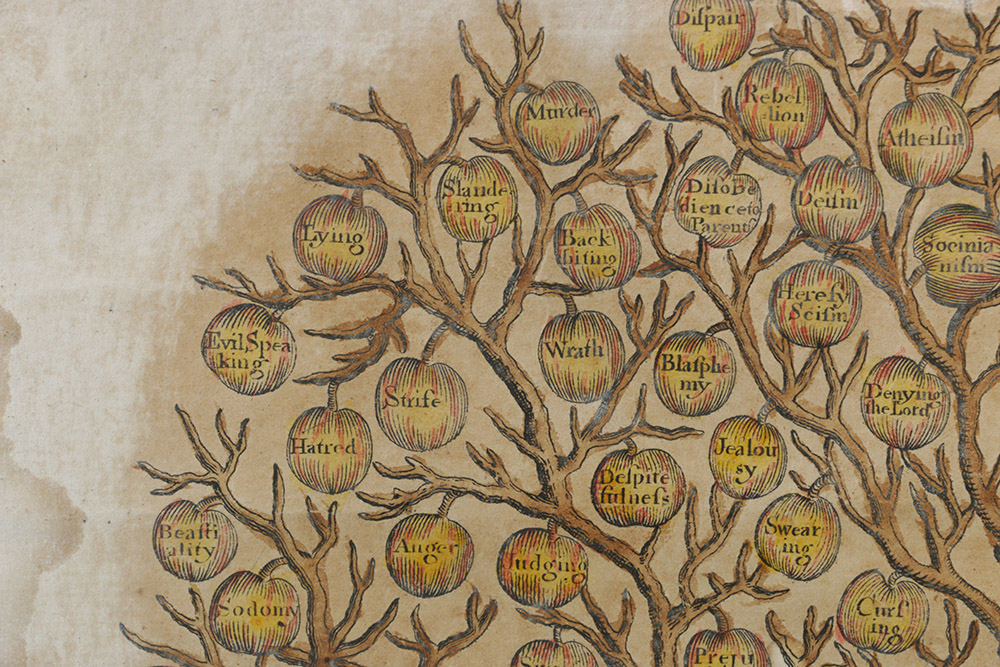 Diſpair
Rebel
lion
Murder
Atheiſm
Slande
ring
Diſobe
dience to
Parents
Deiſm
Lying
Back
biting
Socinia
niſm
Hereſy
Sciſm
Evil Spea
king
Wrath
Blaſphe
my
Strife
Denying
the Lord
Hatred
Jealou
sy
Deſpite
fulneſs
Swear
ing
Beaſti
ality
Anger
Judging
Sodomy
Curſ
ing
Preju